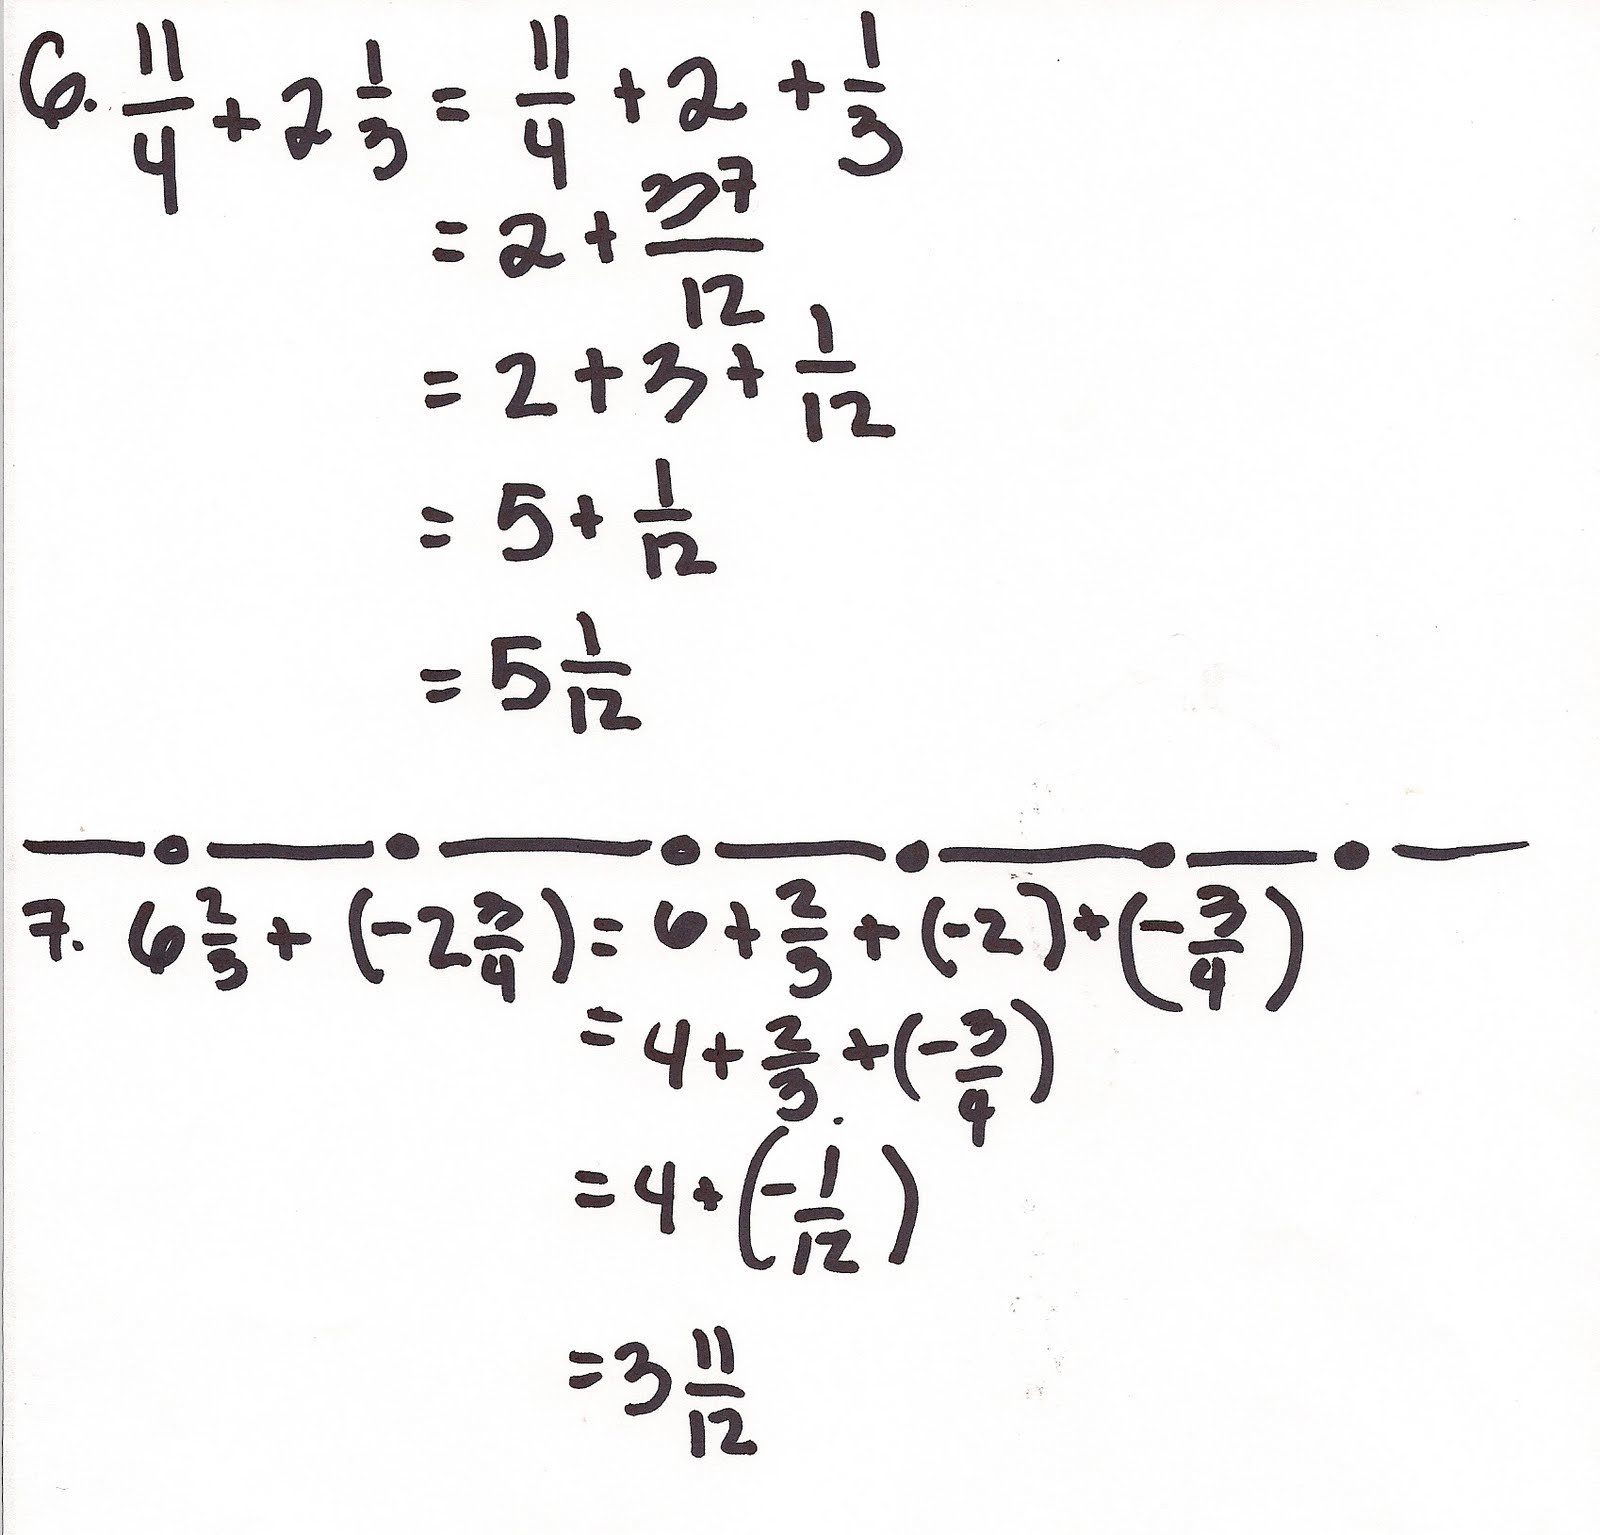 6. 11/4 + 2 1/3 = 11/4 + 2 + 1/3
= 2 + 37/12
= 2 + 3 + 1/12
= 5 + 1/12
= 5 1/12
7. 6 2/3 + (-2 3/4) = 6 + 2/3 + (-2) + (-3/4)
= 4 + 2/3 + (-3/4)
= 4 + (-1/12)
= 3 11/12